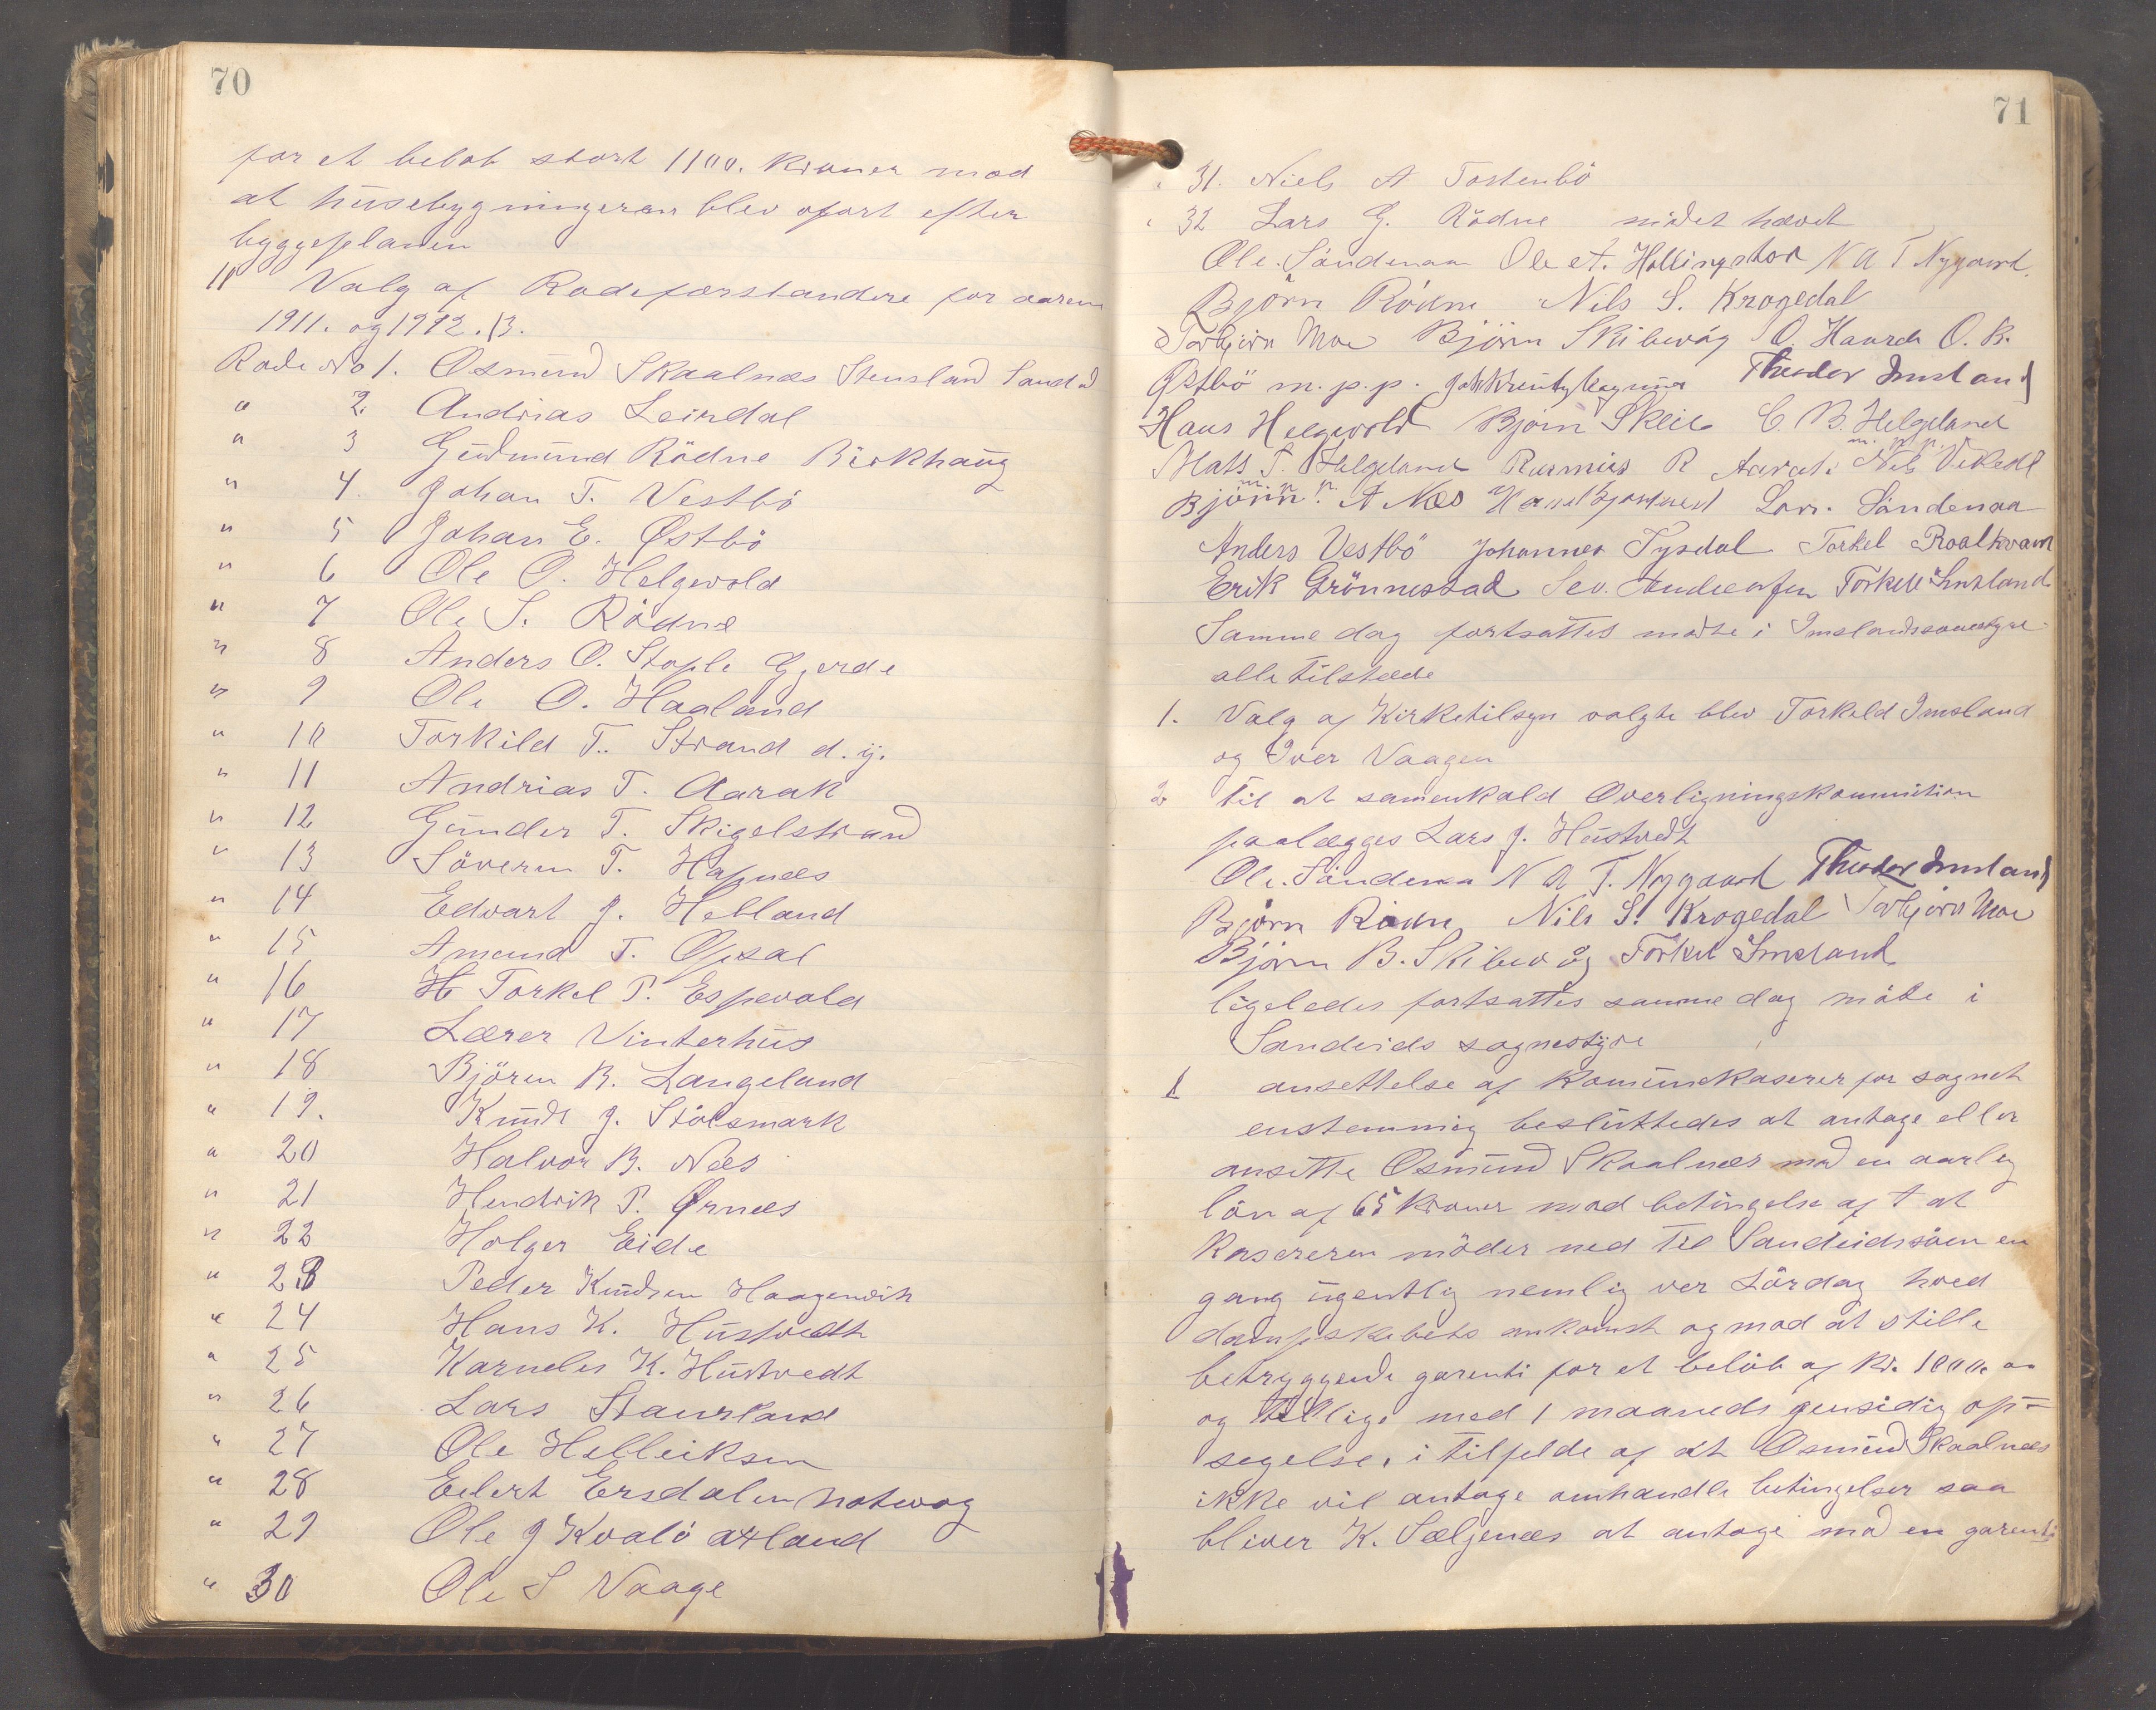 70
for et beløb stort 1100. Kroner mod
at husebygningeren blev opført efter
byggeplanen
11 Valg af Rodeforstandere for aarene
1911. og 1912. 13.
Rode No 1. Osmund Skaalnæs Stensland Sandeid
" 2. Andrias Leirdal
" 3 Gudmund Rödne Birkhaug
" 4. Johan T. Vestbö
" 5 Johan E. Østbö
" 6 Ole O. Helgevold
" 7 Ole S. Rödne
" 8 Anders O. Stople Gjerde
" 9 Ole O. Haaland
" 10 Torkild T. Strand d. y.
" 11 Andrias T. Aarak
" 12 Gunder T. Skigelstrand
" 13 Söveren T. Hapnes
" 14 Edvart J. Helland
" 15 Amund T. Opsal
" 16 H Torkel P. Espevold
" 17 Lærer Vinterhus
" 18 Björen B. Langeland
" 19. Knudt J. Stölsmark
" 20 Halvor B. Næs
" 21 Hendrik P. Ørnæs
" 22 Holger Eide
" 23 Peder Knudsen Haagenvik
" 24 Hans K. Hustvedt
" 25 Karnelius K. Hustvedt
" 26 Lars Staurland
" 27 Ole Helleiksen
" 28 Eilert Ersdalen Notevog
" 29 Ole J Kvalö axland
" 30 Ole S Vaage
71
" 31. Niels A Tostenbö
" 32 Lars G. Rödne mödet hævet
Ole. Sandenaa Ole A. Hallingstad N A T Nygaard.
Björn Rödne Nils S. Krogedal
Torbjörn Moe Björn Skibevåg O. Haurda O. B.
Østbö m. p. p. Theodor Imsland
Hans Helgevold Björn Skeie C. B. Helgeland
Mats T. Helgeland Rasmus R Aarak Nils Vikedl
m. p. p. m. p. p.
Björn A Næs Lars. Sandenaa
Anders Vestbö Johannes Tysdal Torkel Roalkvam
Erik Grönnestad Sev. Andreassen Torkel Imsland
Samme dag fortsattes möte i Imslandssognestyre
alle tilstæde
1. Valg af Kirketilsyn valgte blev Torkeld Imsland
og Iver Vaagen
2 til at samenkald Overligningskommission
paalægges Lars J. Hustvedt
Ole. Sandenaa N A T. Nygaard Theodor Imsland
Björn Rödne Nils S. Krogedal Torbjörn Moe
Björn B. Skibevåg Torkel Imsland
ligeledes fortsattes samme dag möte i
Sandeids sognestyre
1 ansettelse af Komunekaserer for sognet
enstemmig besluttedes at antage eller
ansette Osmund Skaalnæs mod en aarlig
lön af 65 Kroner mod betingelse af t at
Kasereren möder ned til Sandeidssöen en
gang ugentlig nemlig ver Lördag hved
dampskibets ankomst og mod at stille
betryggende garenti for et belöb af Kr. 1000.00
og tillige med 1 maaneds gensidig op=
segelse, i tilfelde af at Osmund Skaalnæs
ikke vil antage omhandle betingelser saa
bliver K. Sæljenæs at antage mod en garenti